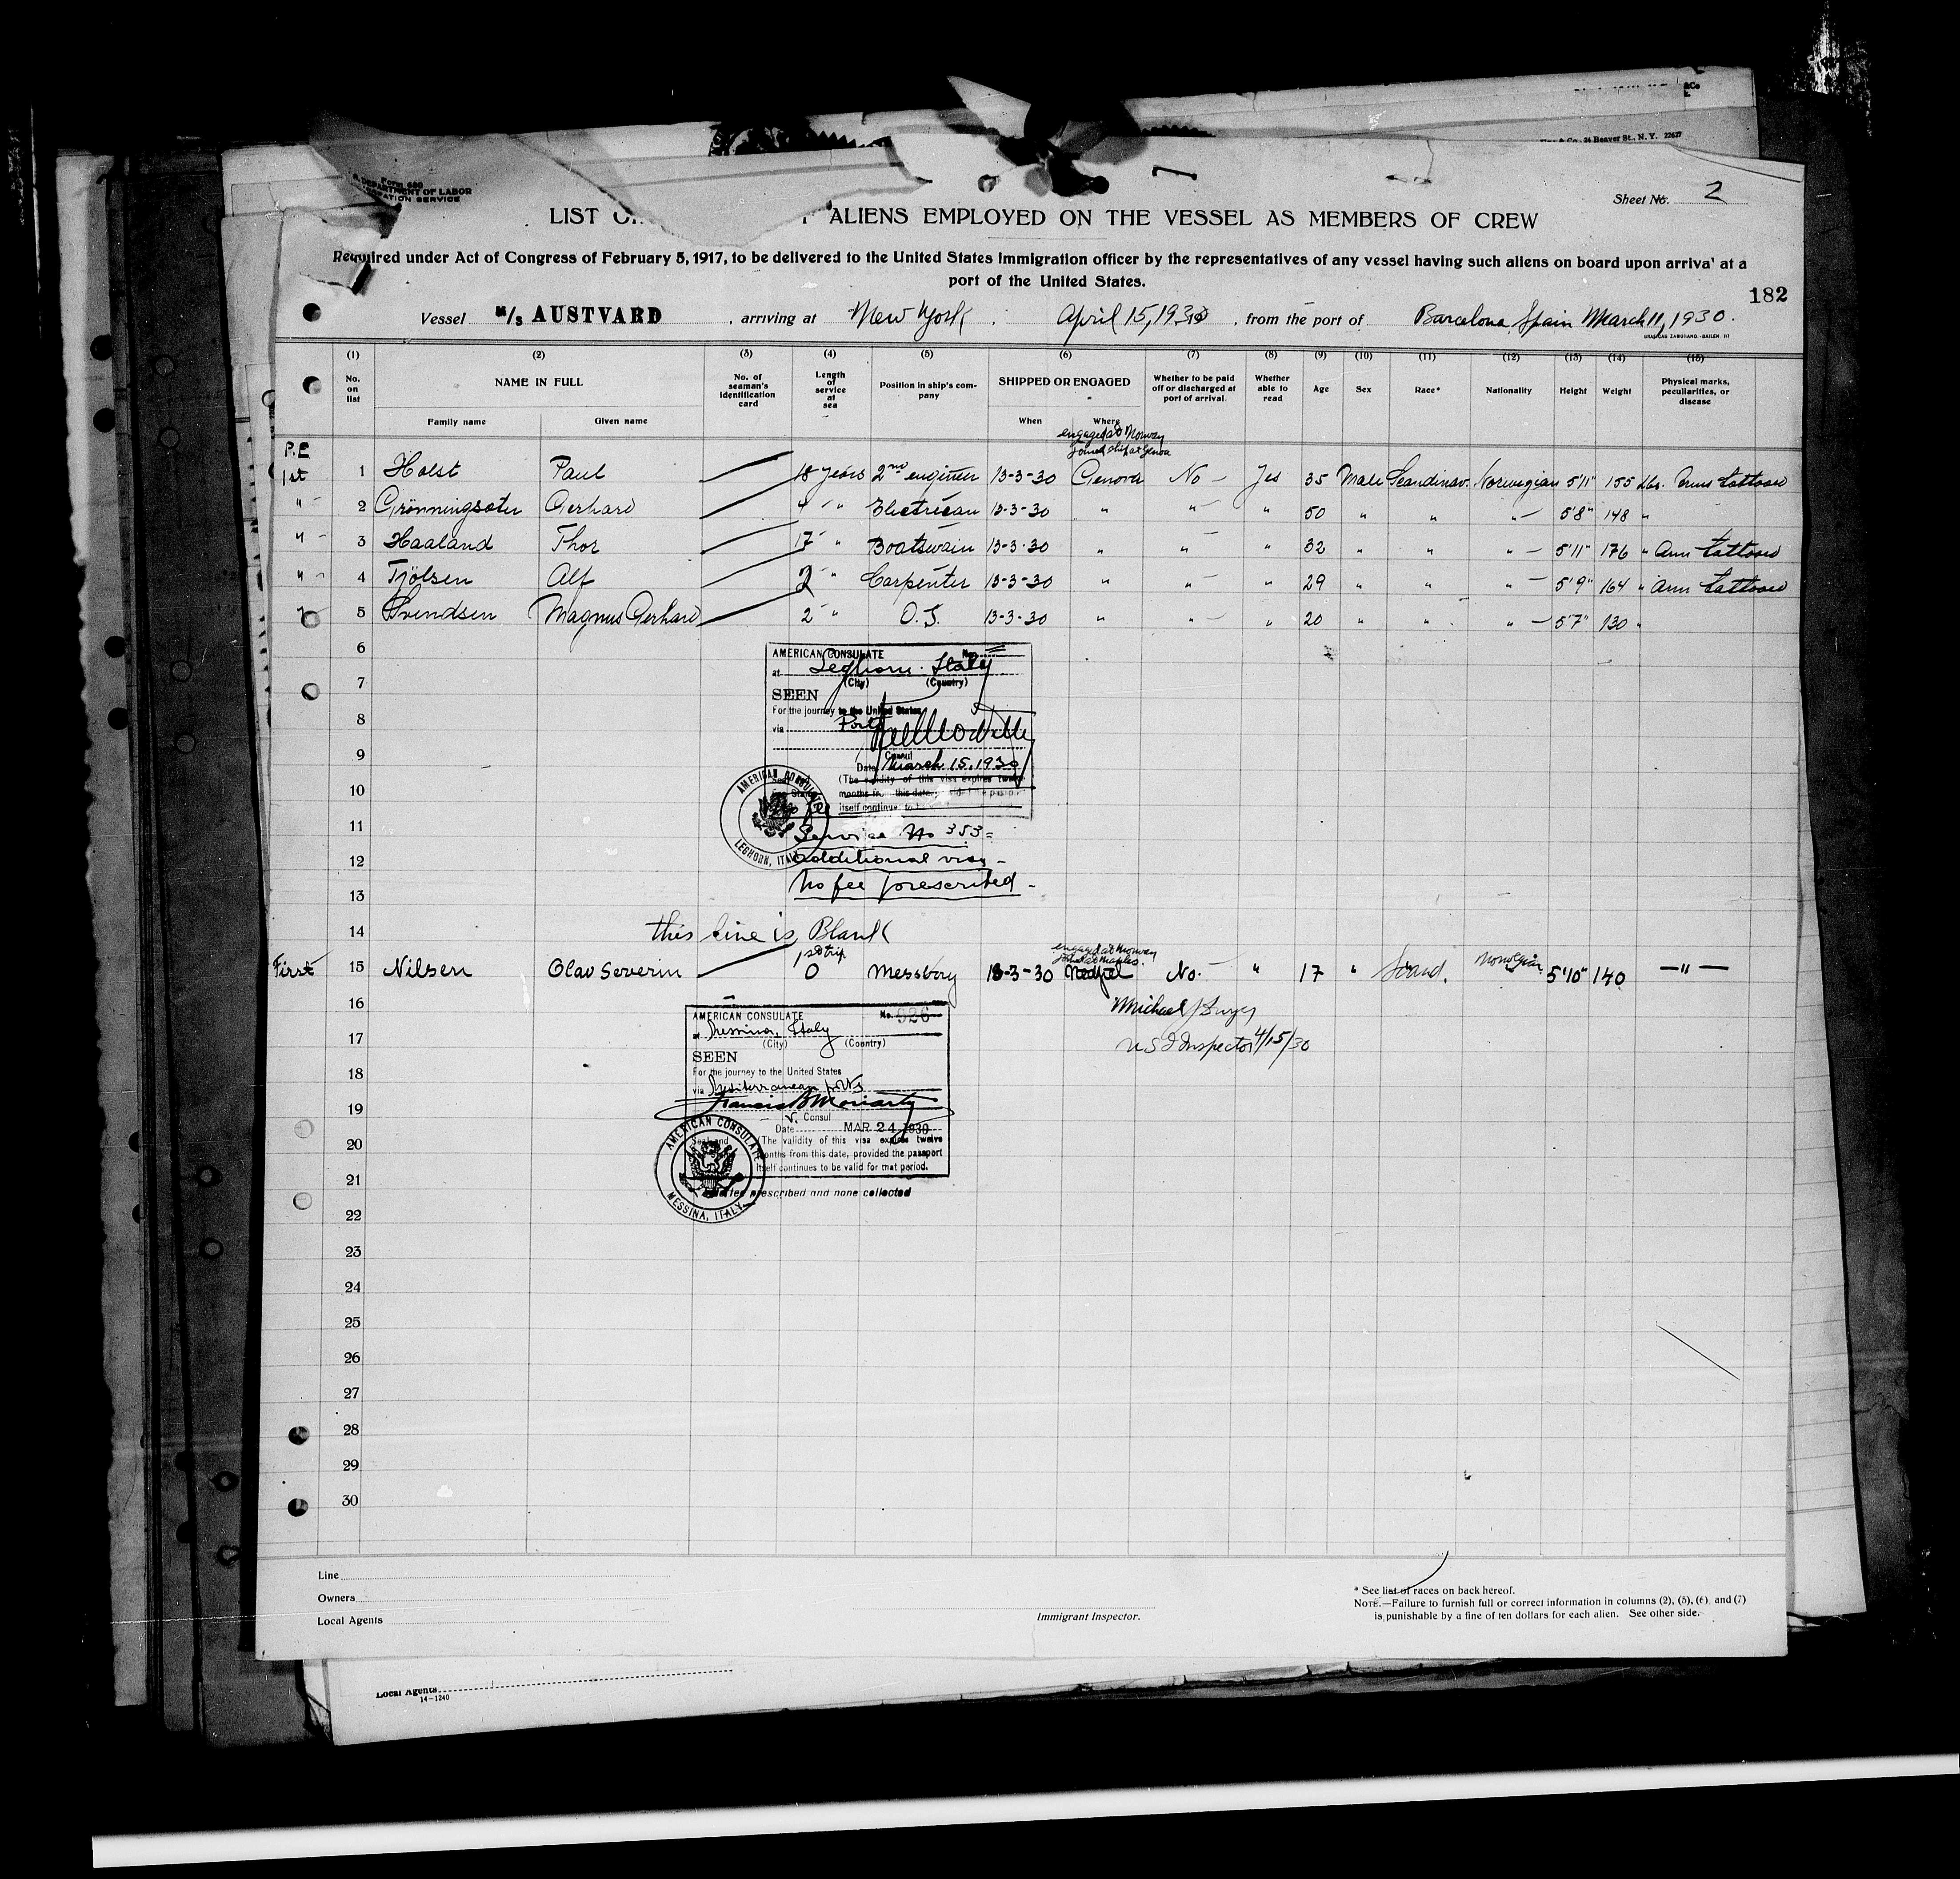 & Co. 24 Beaver St., N. Y. 22627
Form 680
DEPARTMENT OF LABOR
IMMIGRATION SERVICE
Sheet No. 2
LIST O ALIENS EMPLOYED ON THE VESSEL AS MEMBERS OF CREW
Required under Act of Congress of February 5, 1917, to be delivered to the United States immigration officer by the representatives of any vessel having such aliens on board upon arriva' at a
port of the United States.
182
Vessel M/S AUSTVARD, arriving at New York, April 15, 1930, from the port of Barcelona, Spain March 11, 1930.
(1) (2) (3) (4) (5) (6) (7) (8) (9) (10) (11) (12) (13) (14) (15)
No. on list NAME IN FULL No. of seaman's identification card Length of service at sea Position in ship's company SHIPPED OR ENGAGED Whether to be paid off or discharged at port of arrival. Whether able to read Age Sex Race* Nationality Height Weight Physical marks, peculiarities, or disease
Family name Given name When Where
engaged at Norway
joined ship at Genoa
P.E
1st 1 Holst Paul 18 years 2nd engineer 13-3-30 Genova No - Yes 35 Male Scandinav. Norwegian 5'11" 155 lbs. Arms tattooed
" - 2 Grönningsäter Gerhard " - " Electrican 13-3-30 " " - " 50 " " " - 5'8" 148 "
" - 3 Haaland Thor 17 - " Boatswain 13-3-30 " " - " 32 " " " - 5'11" 176 " Arm tattooed
" - 4 Tjölsen Alf 2 - " Carpenter 13-3-30 " " - " 29 " " " - 5'9" 164 " Arm tattooed
" 5 Svendsen Magnus Gerhard 2 - " O.S. 13-3-30 " " - " 20 " " " - 5'7" 130 "
6
AMERICAN CONSULATE No.
at Leghorn. Italy
7
(City) (Country)
SEEN
For the journey to the United States
8
via Ports
9
Consul
Date March 15, 1930
(The validity of this visa expires twelve
10
months from this date, provided the passport
itself continues to be
AMERICAN CONSULATE
LEGHORN, ITALY
11
Service No 353 =
12
additional visa -
13
No fee prescribed -
14
this line is Blank
1st trip
engaged at Norway
joined at Naples.
First 15 Nilsen Olav Severin 0 Messboy 13-3-30 No. - " 17 " Scand. Norwegian 5'10" 140 - " -
16
Michael
AMERICAN CONSULATE No. 926
at Messina, Italy
17
(City) (Country)
U S I Inspector 4/15/30
SEEN
18
For the journey to the United States
via Mediterranean ports
19
Francis B Moriarty
V. Consul
Date MAR 24 1930
20
Seal and (The validity of this visa expires twelve
months from this date, provided the passport
itself continues to be valid for that period.
21
prescribed and none collected
AMERICAN CONSULATE
MESSINA, ITALY
22
23
24
25
26
27
28
29
30
Line
Owners
Local Agents
Immigrant Inspector.
* See list of races on back hereof.
NOTE.—Failure to furnish full or correct information in columns (2), (5), (6) and (7)
is punishable by a fine of ten dollars for each alien. See other side.
Local Agents
14-1240